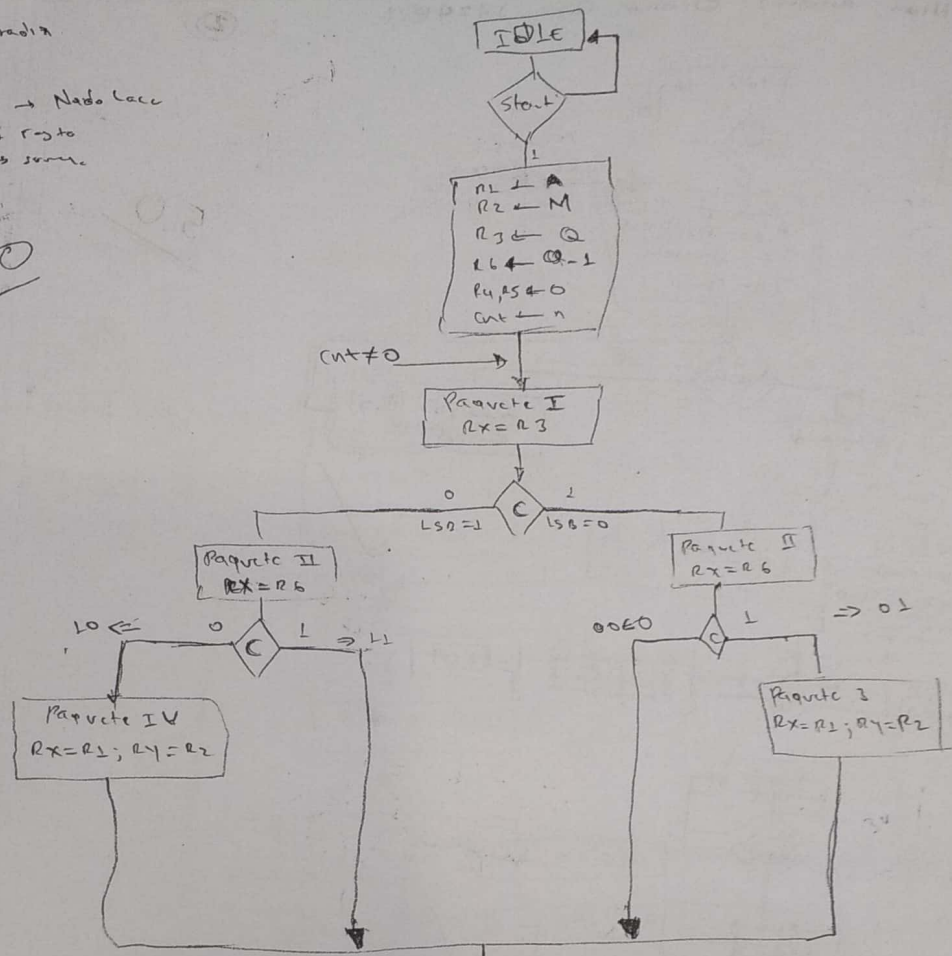 → Nado Lacc
IDLE
Start
1
R1 ← A
R2 ← M
R3 ← Q
R6 ← Q-1
R4, R5 ← 0
Cnt ← n
Cnt≠0
Paquete I
Rx = R3
0
C
1
LSB=1
LSB=0
Paquete II
Rx = R6
Paquete II
Rx = R6
10 ⇐
0
C
1
⇒ 11
00⇐0
C
1
⇒ 01
Paquete IV
Rx=R1; Ry=R2
Paquete 3
Rx=R1; Ry=R2